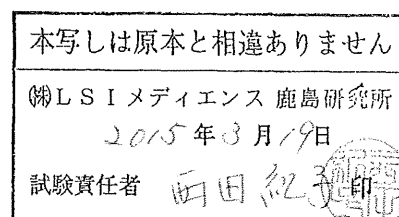 本写しは原本と相違ありません
㈱ＬＳＩメディエンス 鹿島研究所
2015年3月19日
試験責任者 西田 紀子 印